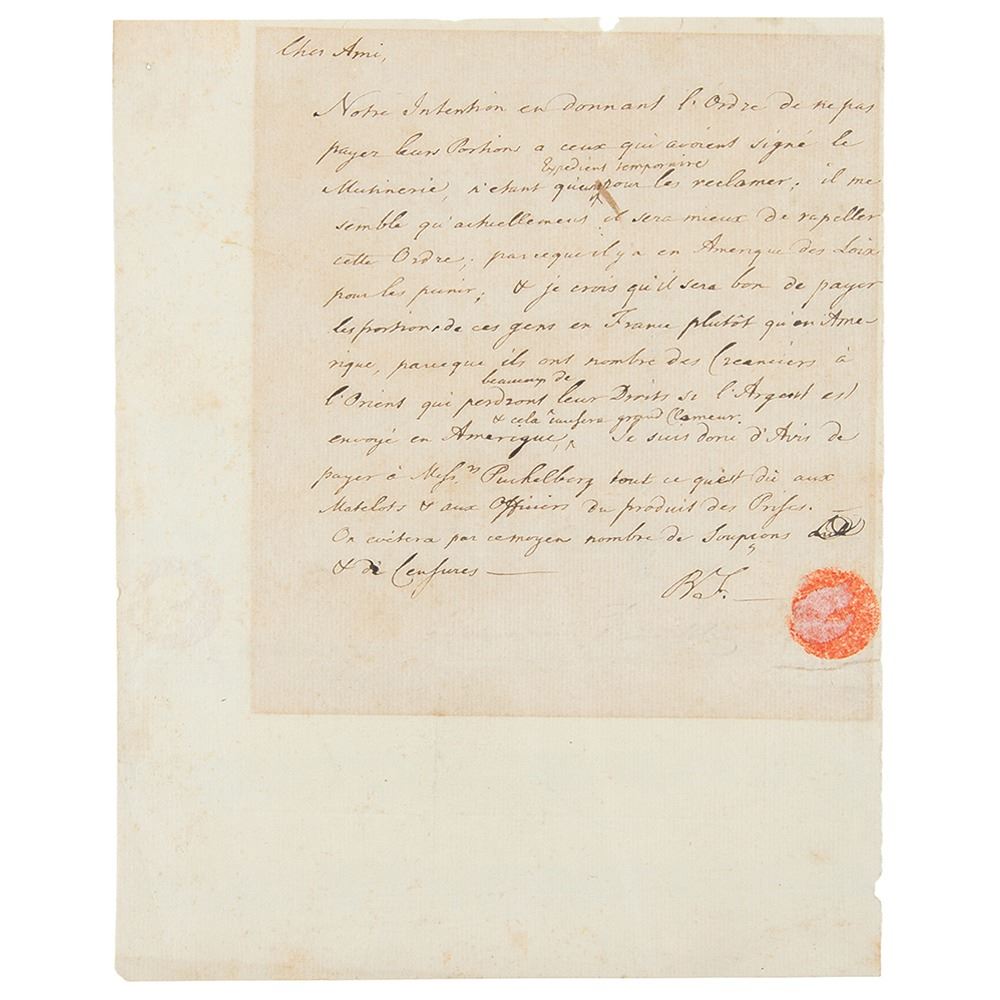 Cher Ami,
Notre Intention en donnant l'Ordre de ne pas
payer leurs Portions a ceux qui avoient signé le
Expedient temporaire
Mutinerie, n'etant qu'un pour les reclamer; il me
semble qu'actuellement il sera mieux de rapeller
cette Ordre; parceque il y a en Amerique des Loix
pour les punir; & je crois qu'il sera bon de payer
les portions de ces gens en France plutôt qu'en Ame-
rique, parceque ils ont nombre des Creanciers à
beaucoup de
l'Orient qui perdront leur Droits si l'Argent est
& cela causera grand Clameur.
envoyé en Amerique, Je suis donc d'Avis de
payer à Mess.rs Puchelberg tout ce qu'est dû aux
Matelots & aux Officiers du produit des Prises.
On evitera par ce moyen nombre de Soupçons
& de Censures —
B. F. —